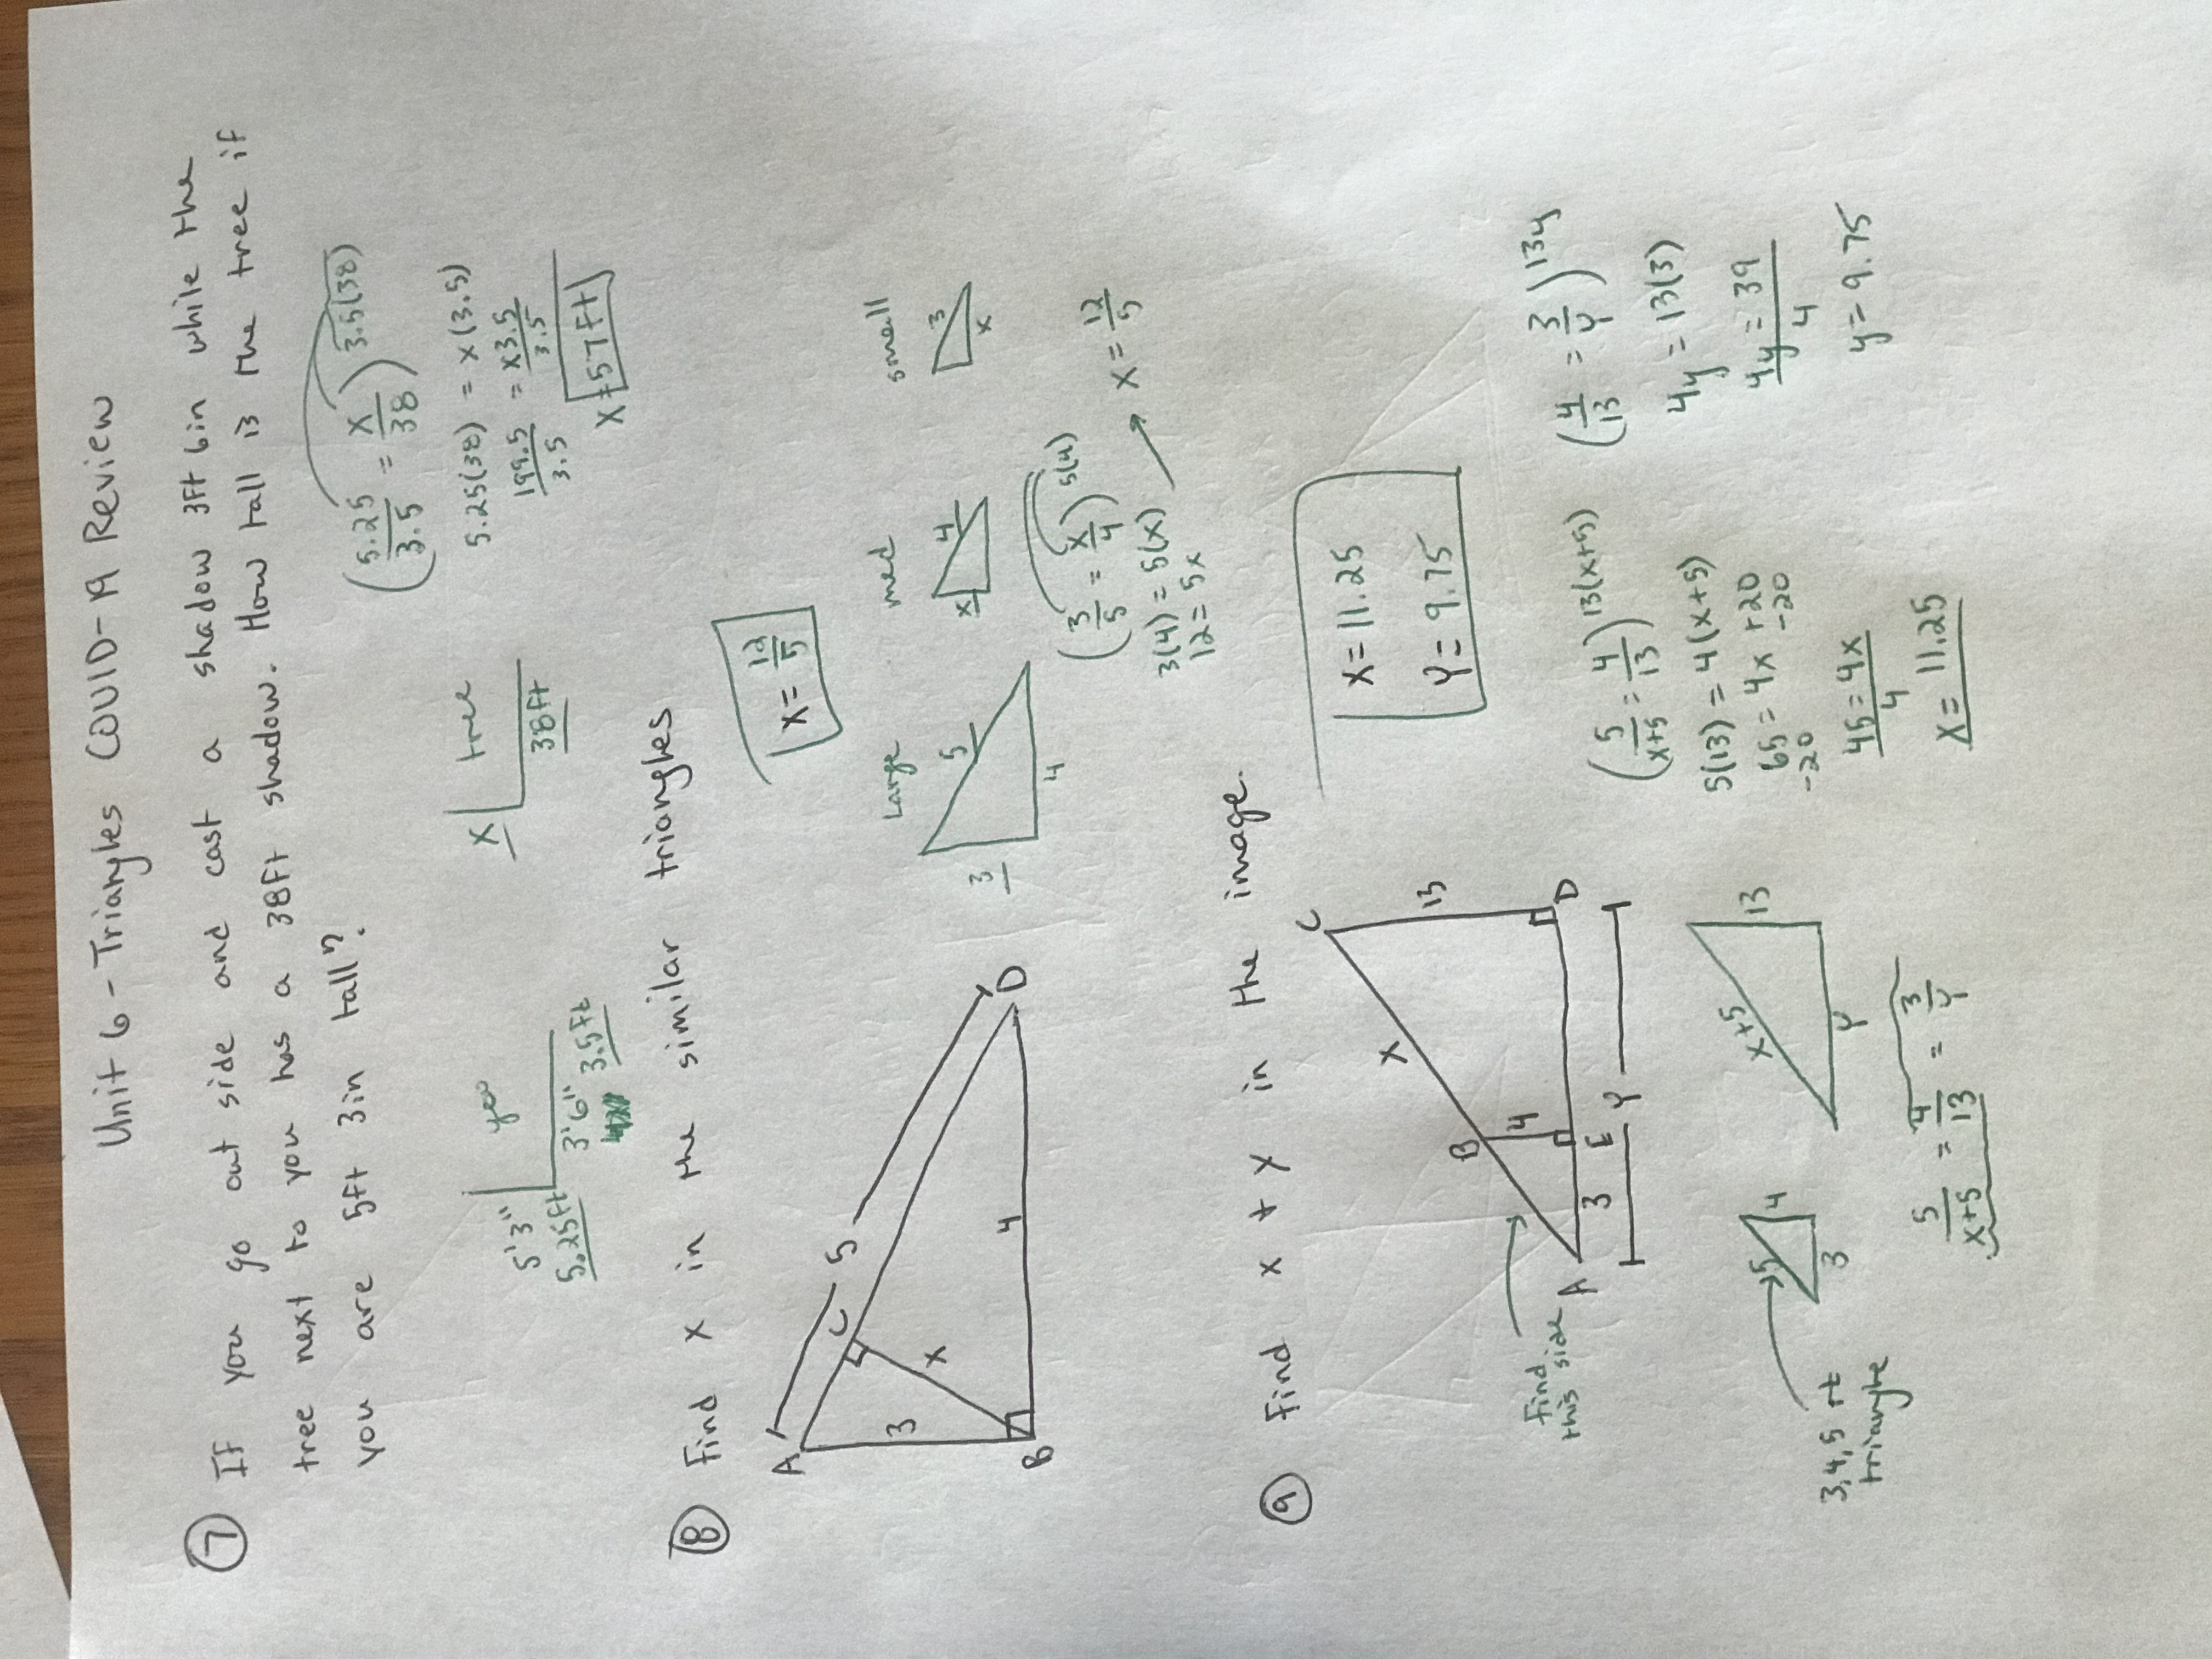 Unit 6 - Triangles COVID-19 Review
7 If you go out side and cast a shadow 3ft 6in while the
tree next to you has a 38ft shadow. How tall is the tree if
you are 5ft 3in tall?
you
5'3"
5.25ft
3'6" 3.5ft
x tree
38ft
(5.25/3.5 = x/38) 3.5(38)
5.25(38) = x(3.5)
199.5/3.5 = x3.5/3.5
x=57ft
8 Find x in the similar triangles
A 5 C D
3 x
B 4
x = 12/5
Large med small
3 5 4
x 4
3 x
(3/5 = x/4) 5(4)
3(4) = 5(x)
12 = 5x
x = 12/5
9 Find x + y in the image.
Find
this side
C x B 4 13
A 3 E D
y
x = 11.25
y = 9.75
3,4,5 rt
triangle
5 4 3
x+5 13 y
5/x+5 = 4/13 = 3/y
(5/x+5 = 4/13) 13(x+5)
5(13) = 4(x+5)
65 = 4x +20
-20 -20
45 = 4x
4
x = 11.25
(4/13 = 3/y) 13y
4y = 13(3)
4y = 39
4
y = 9.75